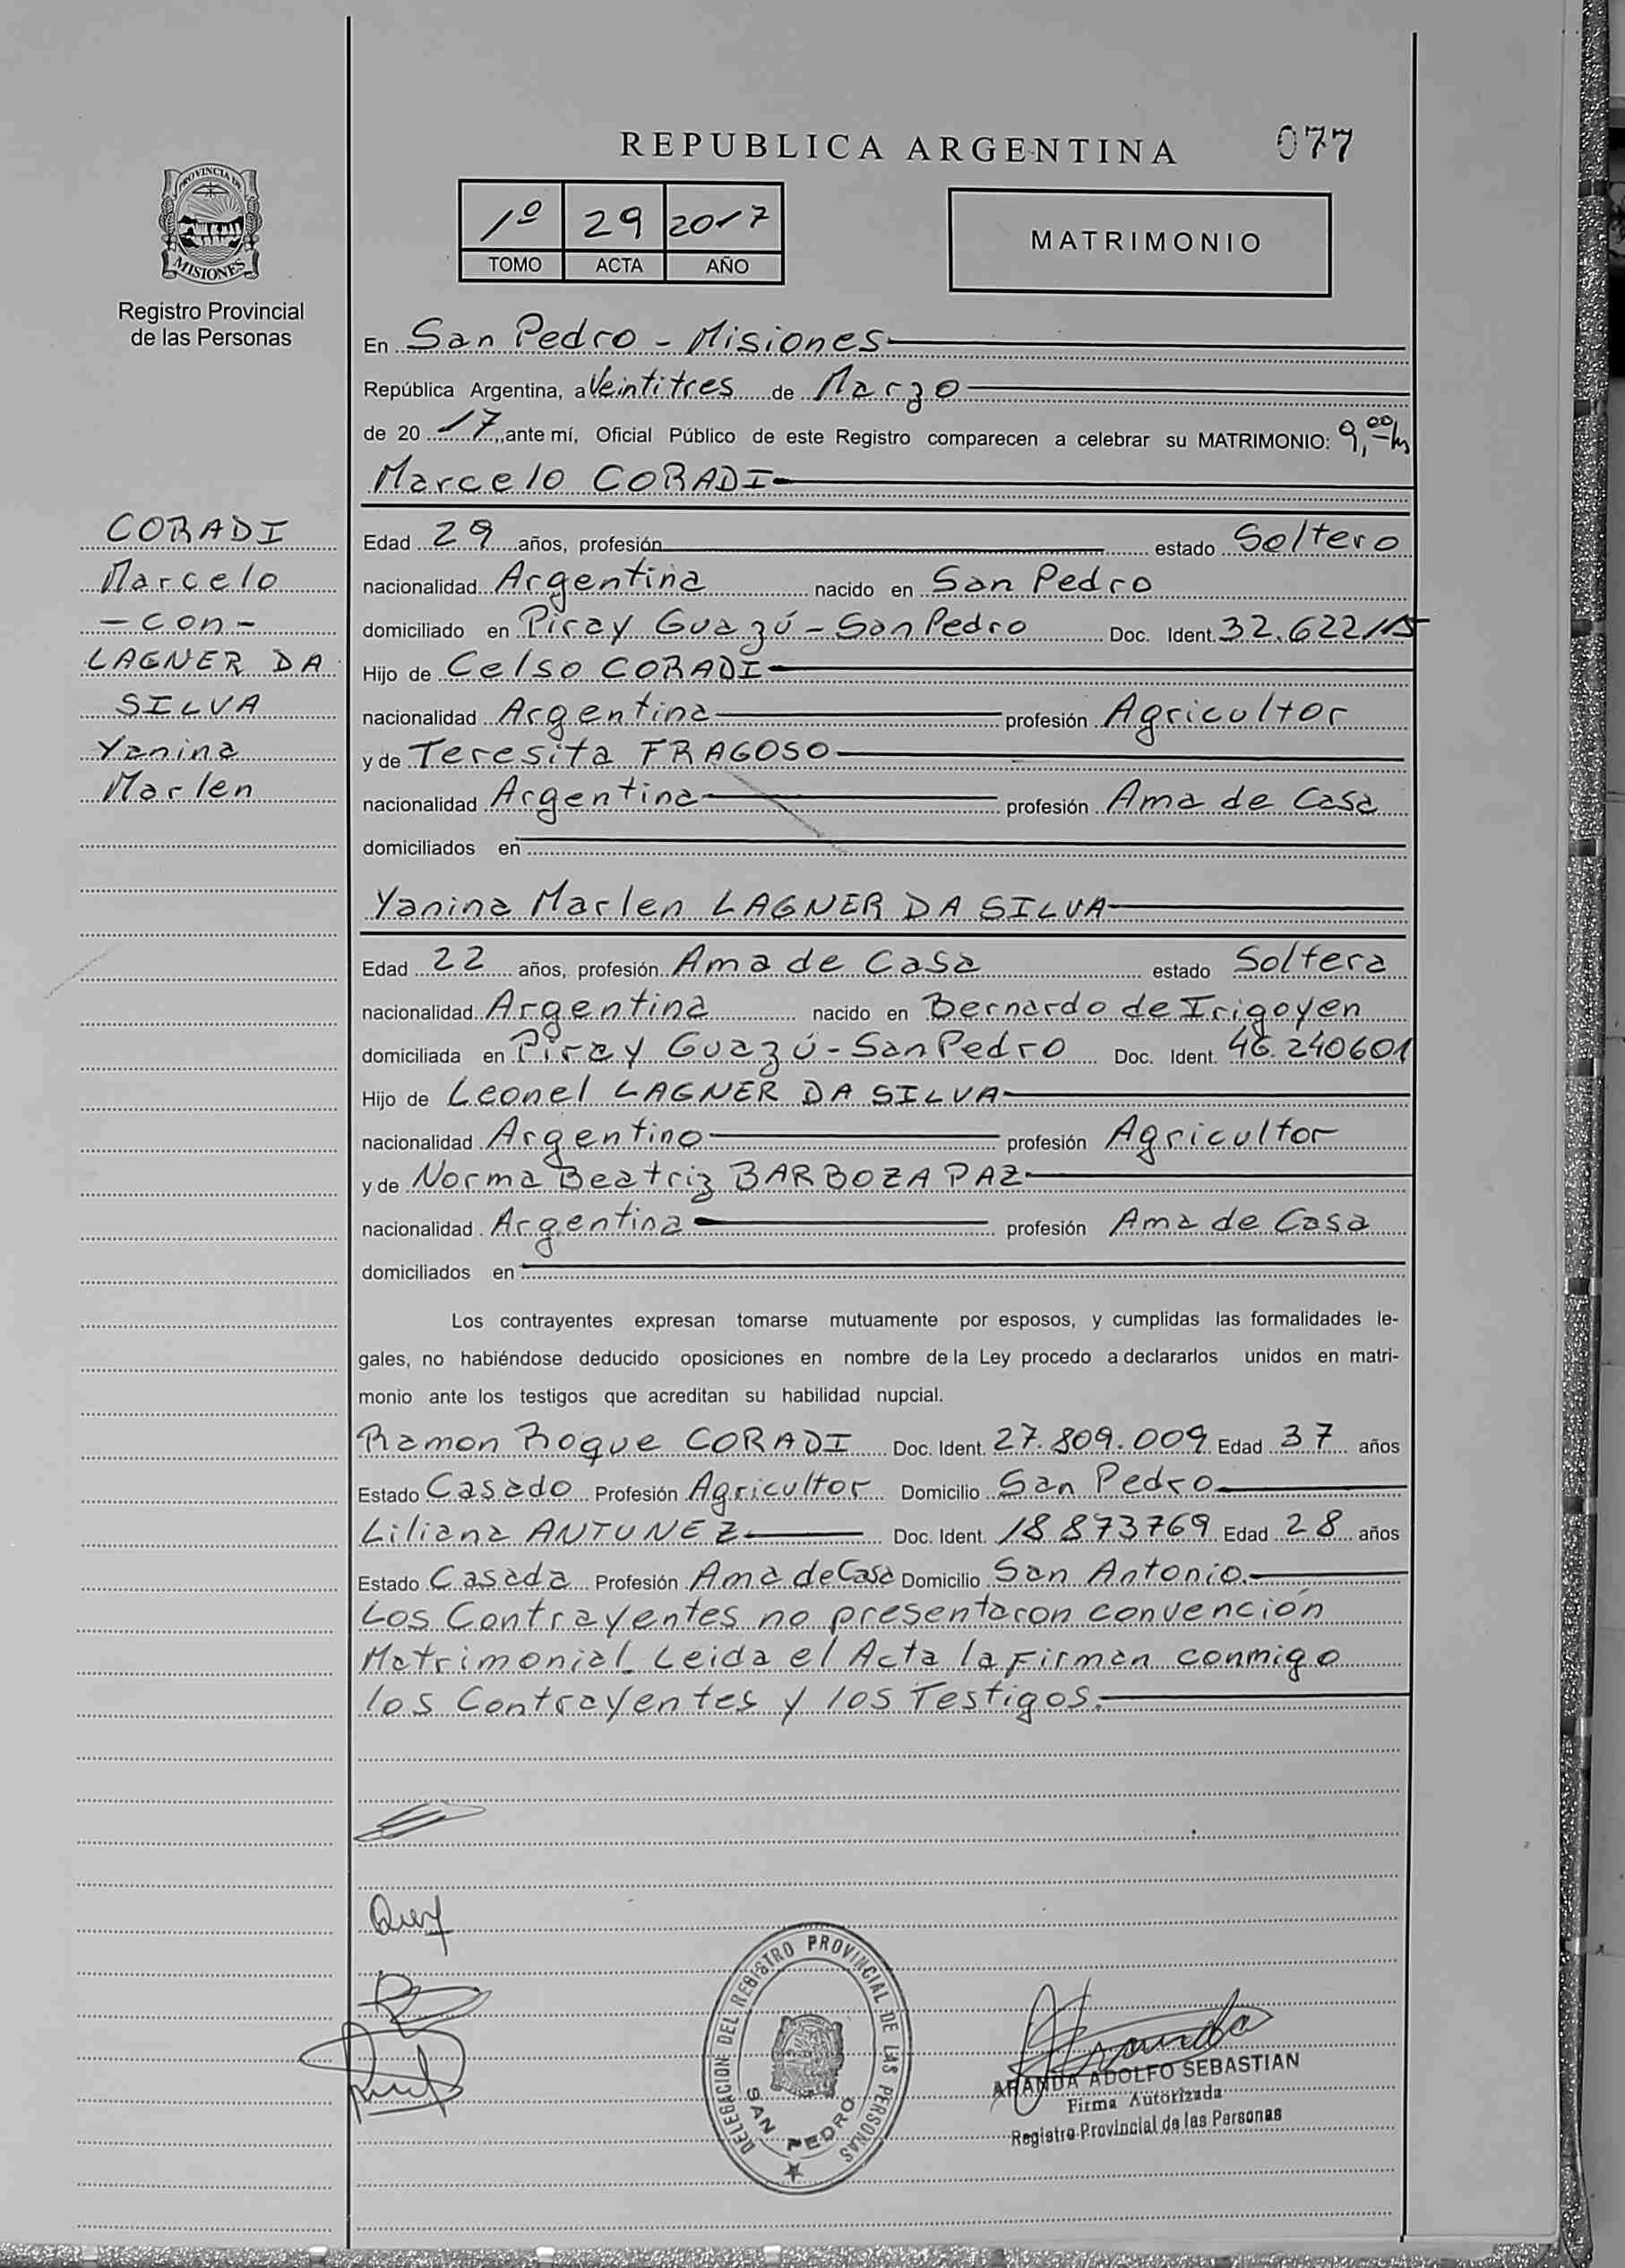 REPUBLICA ARGENTINA 077
PROVINCIA DE
MISIONES
Registro Provincial
de las Personas
1º 29 2017
TOMO ACTA AÑO
MATRIMONIO
En San Pedro - Misiones
República Argentina, a Veintitres de Marzo
de 20 17, ante mí, Oficial Público de este Registro comparecen a celebrar su MATRIMONIO: 9,00 hs
Marcelo CORADI
Edad 29 años, profesión estado Soltero
nacionalidad Argentina nacido en San Pedro
domiciliado en Piray Guazú - San Pedro Doc. Ident. 32.622115
Hijo de Celso CORADI
nacionalidad Argentina profesión Agricultor
y de Teresita FRAGOSO
nacionalidad Argentina profesión Ama de Casa
domiciliados en
Yanina Marlen LAGNER DA SILVA
Edad 22 años, profesión Ama de Casa estado Soltera
nacionalidad Argentina nacido en Bernardo de Irigoyen
domiciliada en Piray Guazú - San Pedro Doc. Ident. 46.240601
Hijo de Leonel LAGNER DA SILVA
nacionalidad Argentino profesión Agricultor
y de Norma Beatriz BARBOZA PAZ
nacionalidad Argentina profesión Ama de Casa
domiciliados en
Los contrayentes expresan tomarse mutuamente por esposos, y cumplidas las formalidades le-
gales, no habiéndose deducido oposiciones en nombre de la Ley procedo a declararlos unidos en matri-
monio ante los testigos que acreditan su habilidad nupcial.
Ramon Roque CORADI Doc. Ident. 27.809.009 Edad 37 años
Estado Casado Profesión Agricultor Domicilio San Pedro
Liliana ANTUNEZ Doc. Ident. 18.873769 Edad 28 años
Estado Casada Profesión Ama de Casa Domicilio San Antonio.
Los Contrayentes no presentaron convención
Matrimonial. Leida el Acta la Firman conmigo
los Contrayentes y los Testigos.
CORADI
Marcelo
- con -
LAGNER DA
SILVA
Yanina
Marlen
DELEGACION DEL REGISTRO PROVINCIAL DE LAS PERSONAS
SAN PEDRO
ARANDA ADOLFO SEBASTIAN
Firma Autorizada
Registro Provincial de las Personas